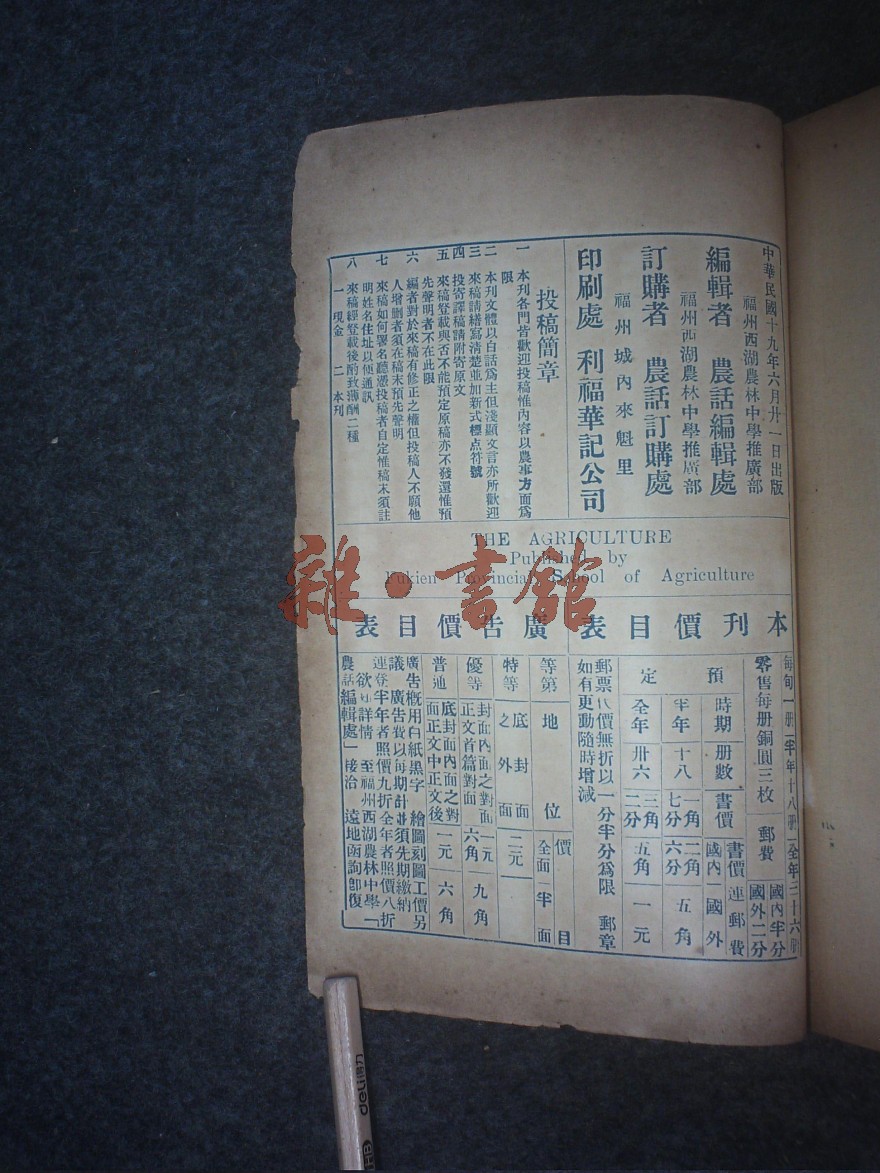 中華民國十九年六月廿一日出版
福州西湖農林中學推廣部
編輯者 農話編輯處
福州西湖農林中學推廣部
訂購者 農話訂購處
福州城內來魁里
印刷處 利福華記公司
投稿簡章
一 本刊各門皆歡迎投稿惟內容以農事方面為
限
二 本刊文體以白話為主但淺顯文言亦所歡迎
三 來稿請繕寫清楚並加新式標点符號
四 投寄譯稿請附寄原文
五 來稿登載與否不能預定原稿亦不發還惟預
先聲明者不在此限
六 編者對於來稿有修正之權但投稿人不願他
人增刪者須在稿末預先聲明
七 來稿如何署名聽憑投稿者自定惟稿末須註
明姓名住址以便通訊
八 來稿經登載後酌致薄酬二種
一 現金 二 本刊
THE AGRICULTURE
Published by
Fukien Provincial School of Agriculture
本刊價目表
每旬一冊半年十八冊全年三十六冊
零售每册銅圓三枚 郵費 國內半分 國外二分
預定
時期 册數 書價 書價連郵費 國內 國外
半年 十八 一角七分 二角六分 五角
全年 卅六 三角二分 五角 一元
郵票代價無折以一分半分為限 郵章
如有更動隨時增減
廣告價目表
等第 地位 價目 全面 半面
特等 底封面之外面 二元
優等 封面內面之對面正文首篇對面 一元六角 九角
普通 底封面內面之對面正文中正文後 一元 六角
廣告概用白紙黑字 繪圖刻圖工價另
議 廣告費以每期計並須先期繳納
連登半年者照價九折全年者照價八折
欲知詳情 至福州西湖農林中學「
農話編輯處」接洽 遠地函詢卽復
雜·書館
deli得力
HB